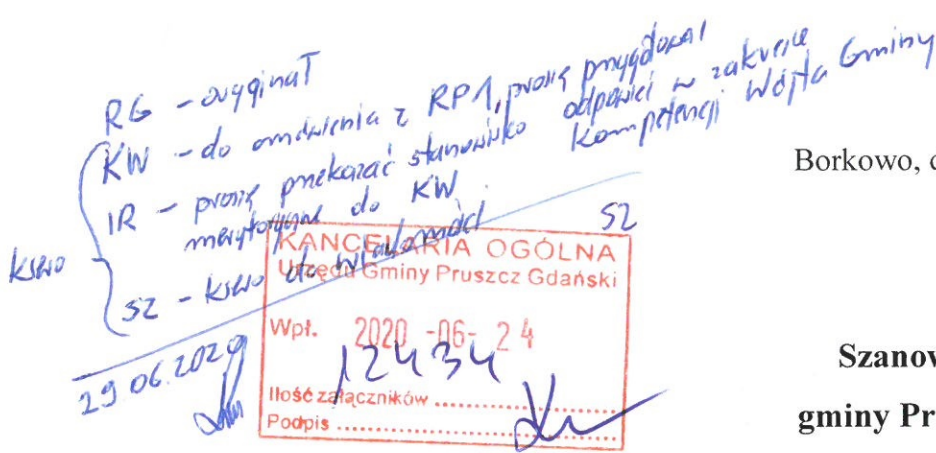 RG - oryginał
KW - do omówienia z RP1, proszę przygotować
odpowiedź w zakresie
kompetencji Wójta Gminy
IR - proszę przekazać stanowisko
merytoryczne do KW.
ksero
SZ - ksero do wiadomości
SZ
29 06.2020
Borkowo, d
KANCELARIA OGÓLNA
Urzędu Gminy Pruszcz Gdański
Wpł. 2020 -06- 24
12434
Ilość załączników ..........
Podpis ..........
Szanow
gminy Pr